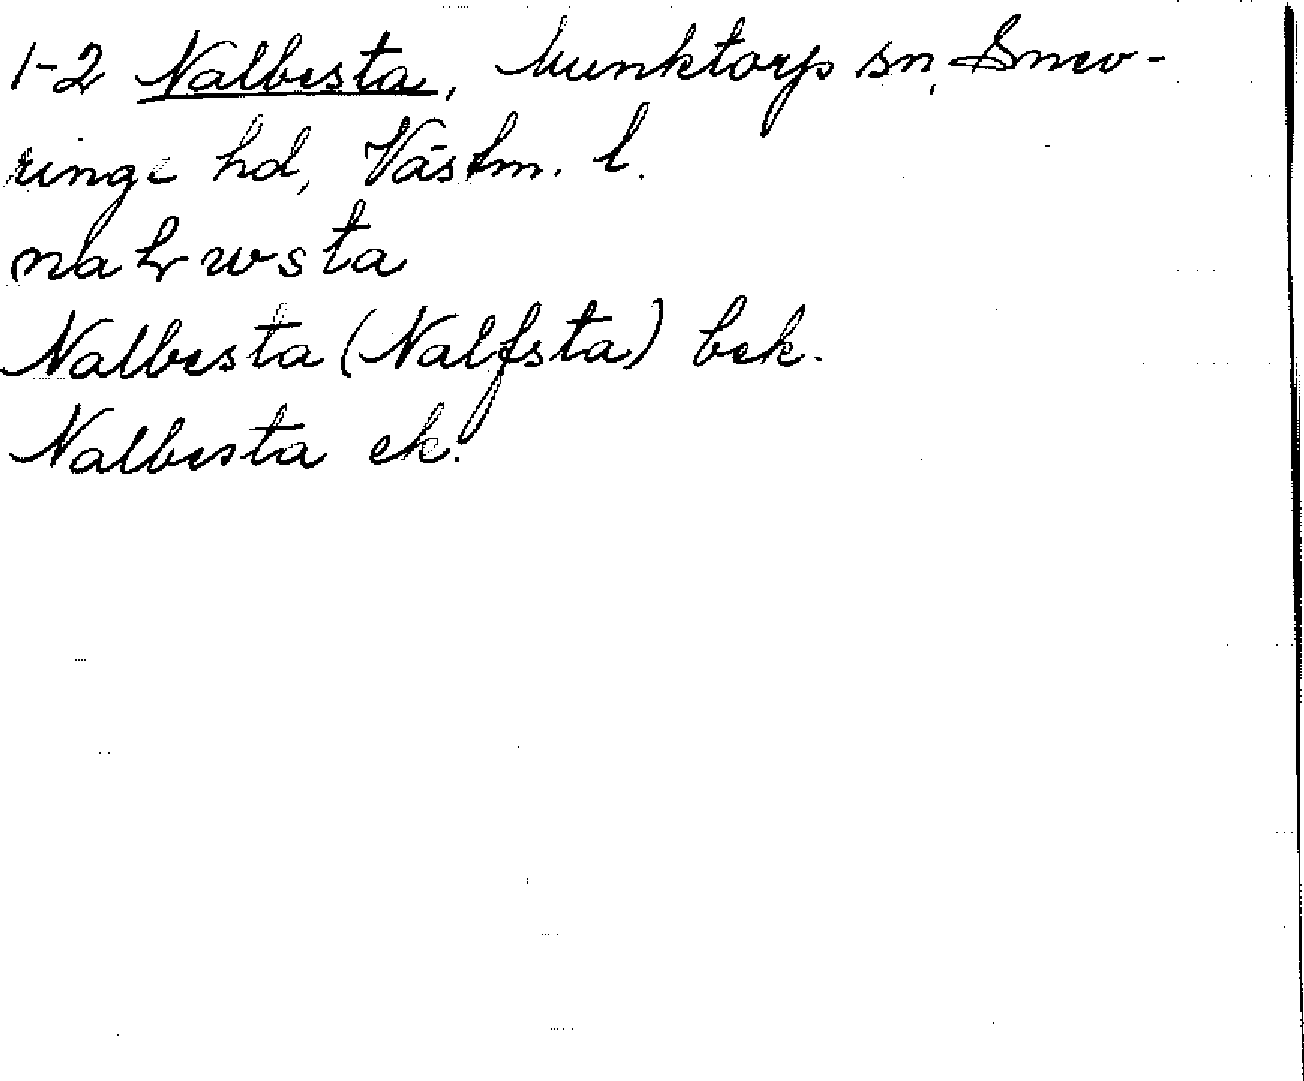 1-2 Nalbesta, Munktorps sn, Snev-
ringe hd, Västm. l.
Nalbesta (Nalfsta) bek.
Nalbesta ek.